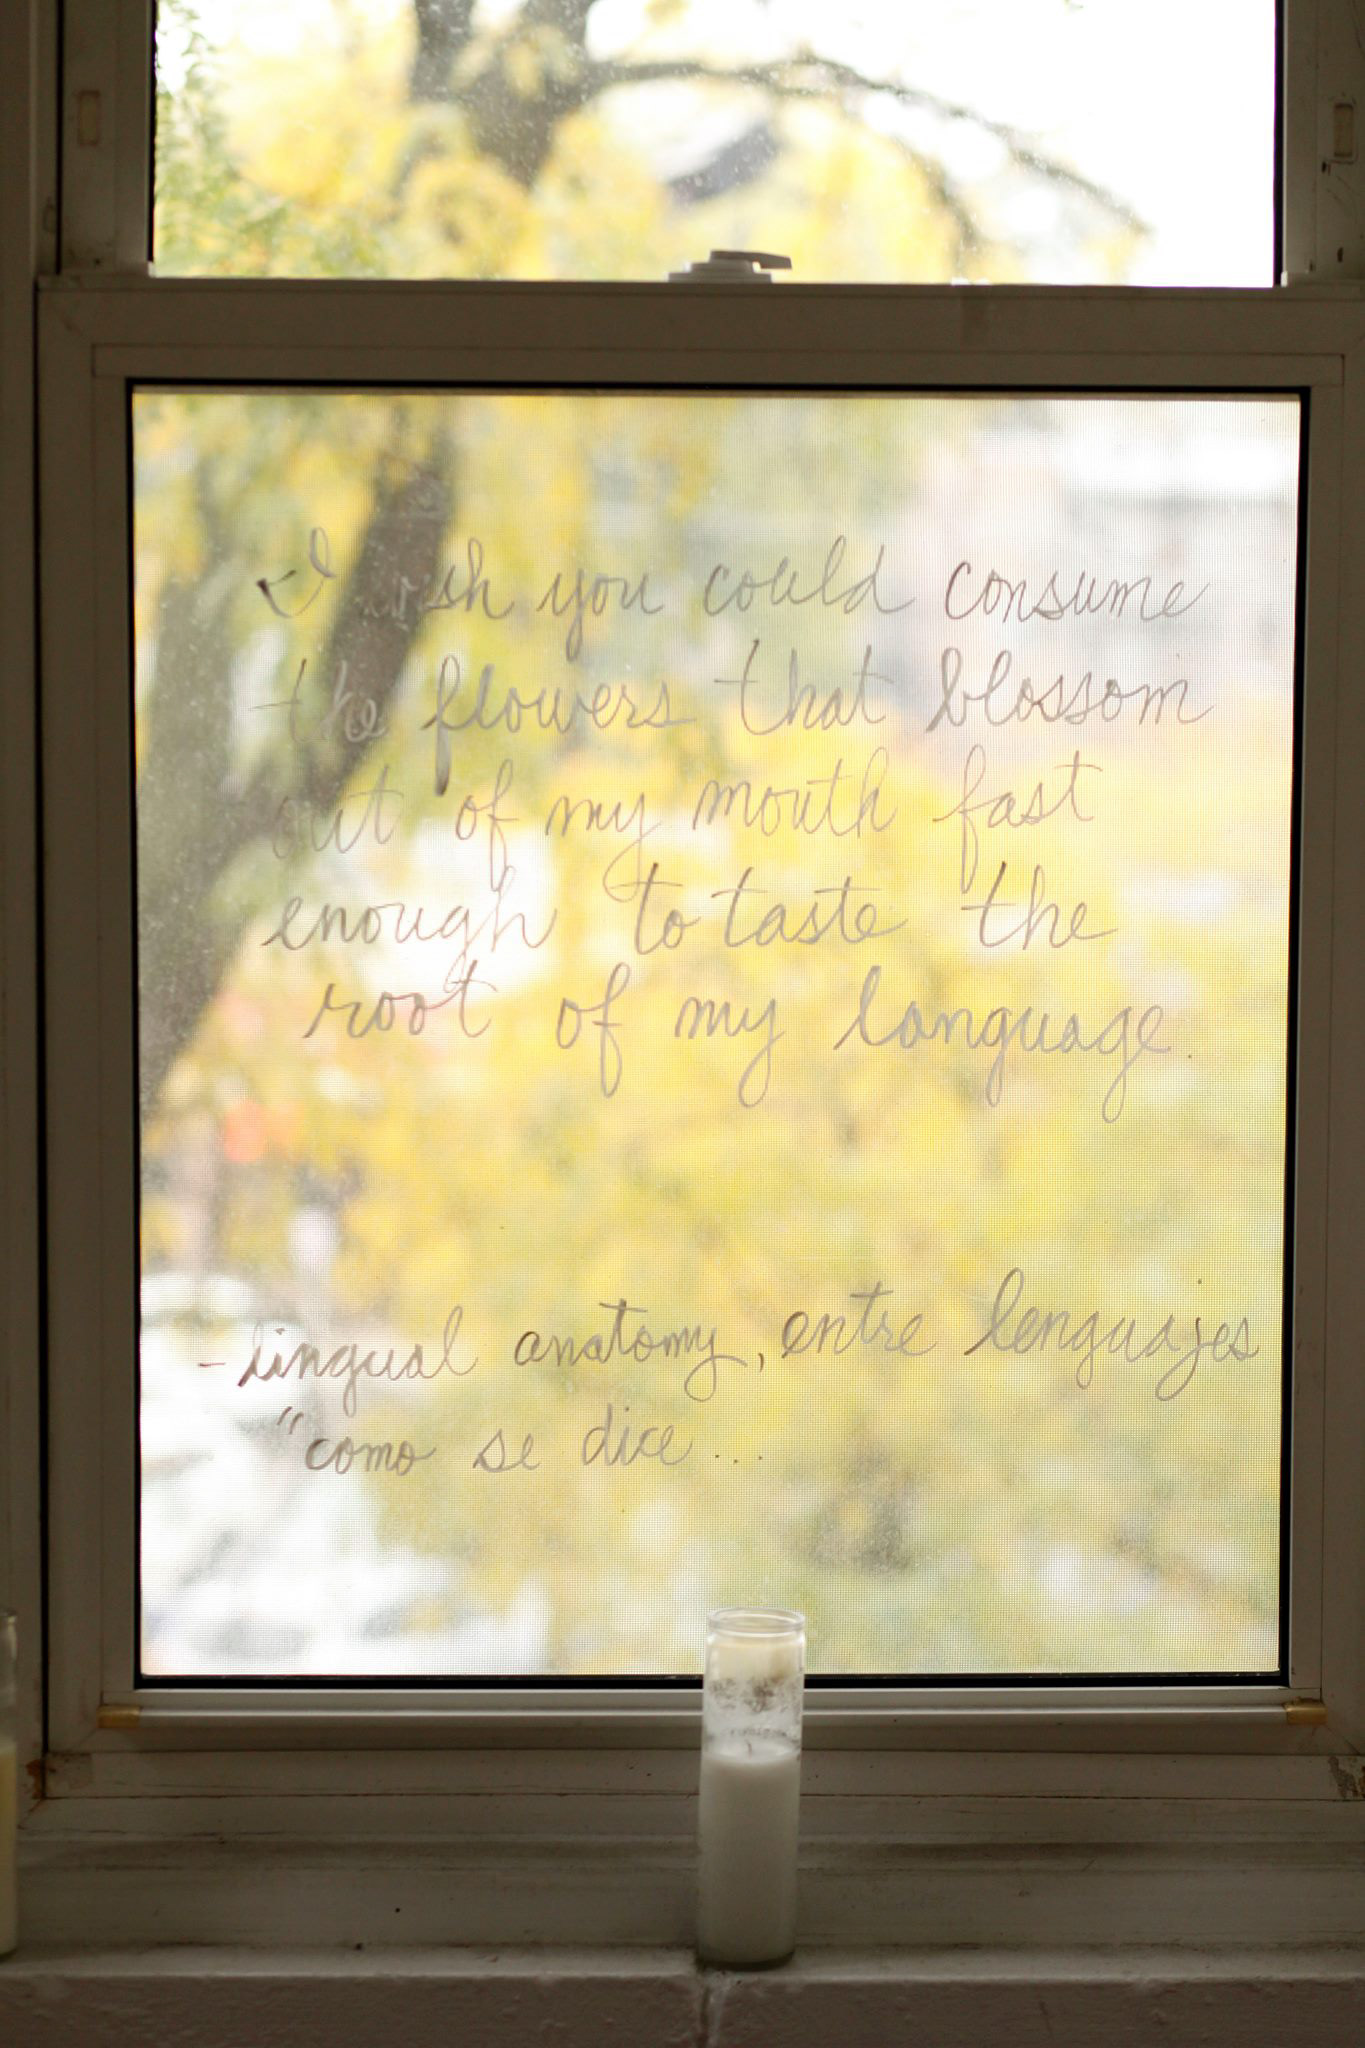 I wish you could consume
the flowers that blossom
out of my mouth fast
enough to taste the
root of my language.
- lingual anatomy, entre lenguajes
"como se dice...